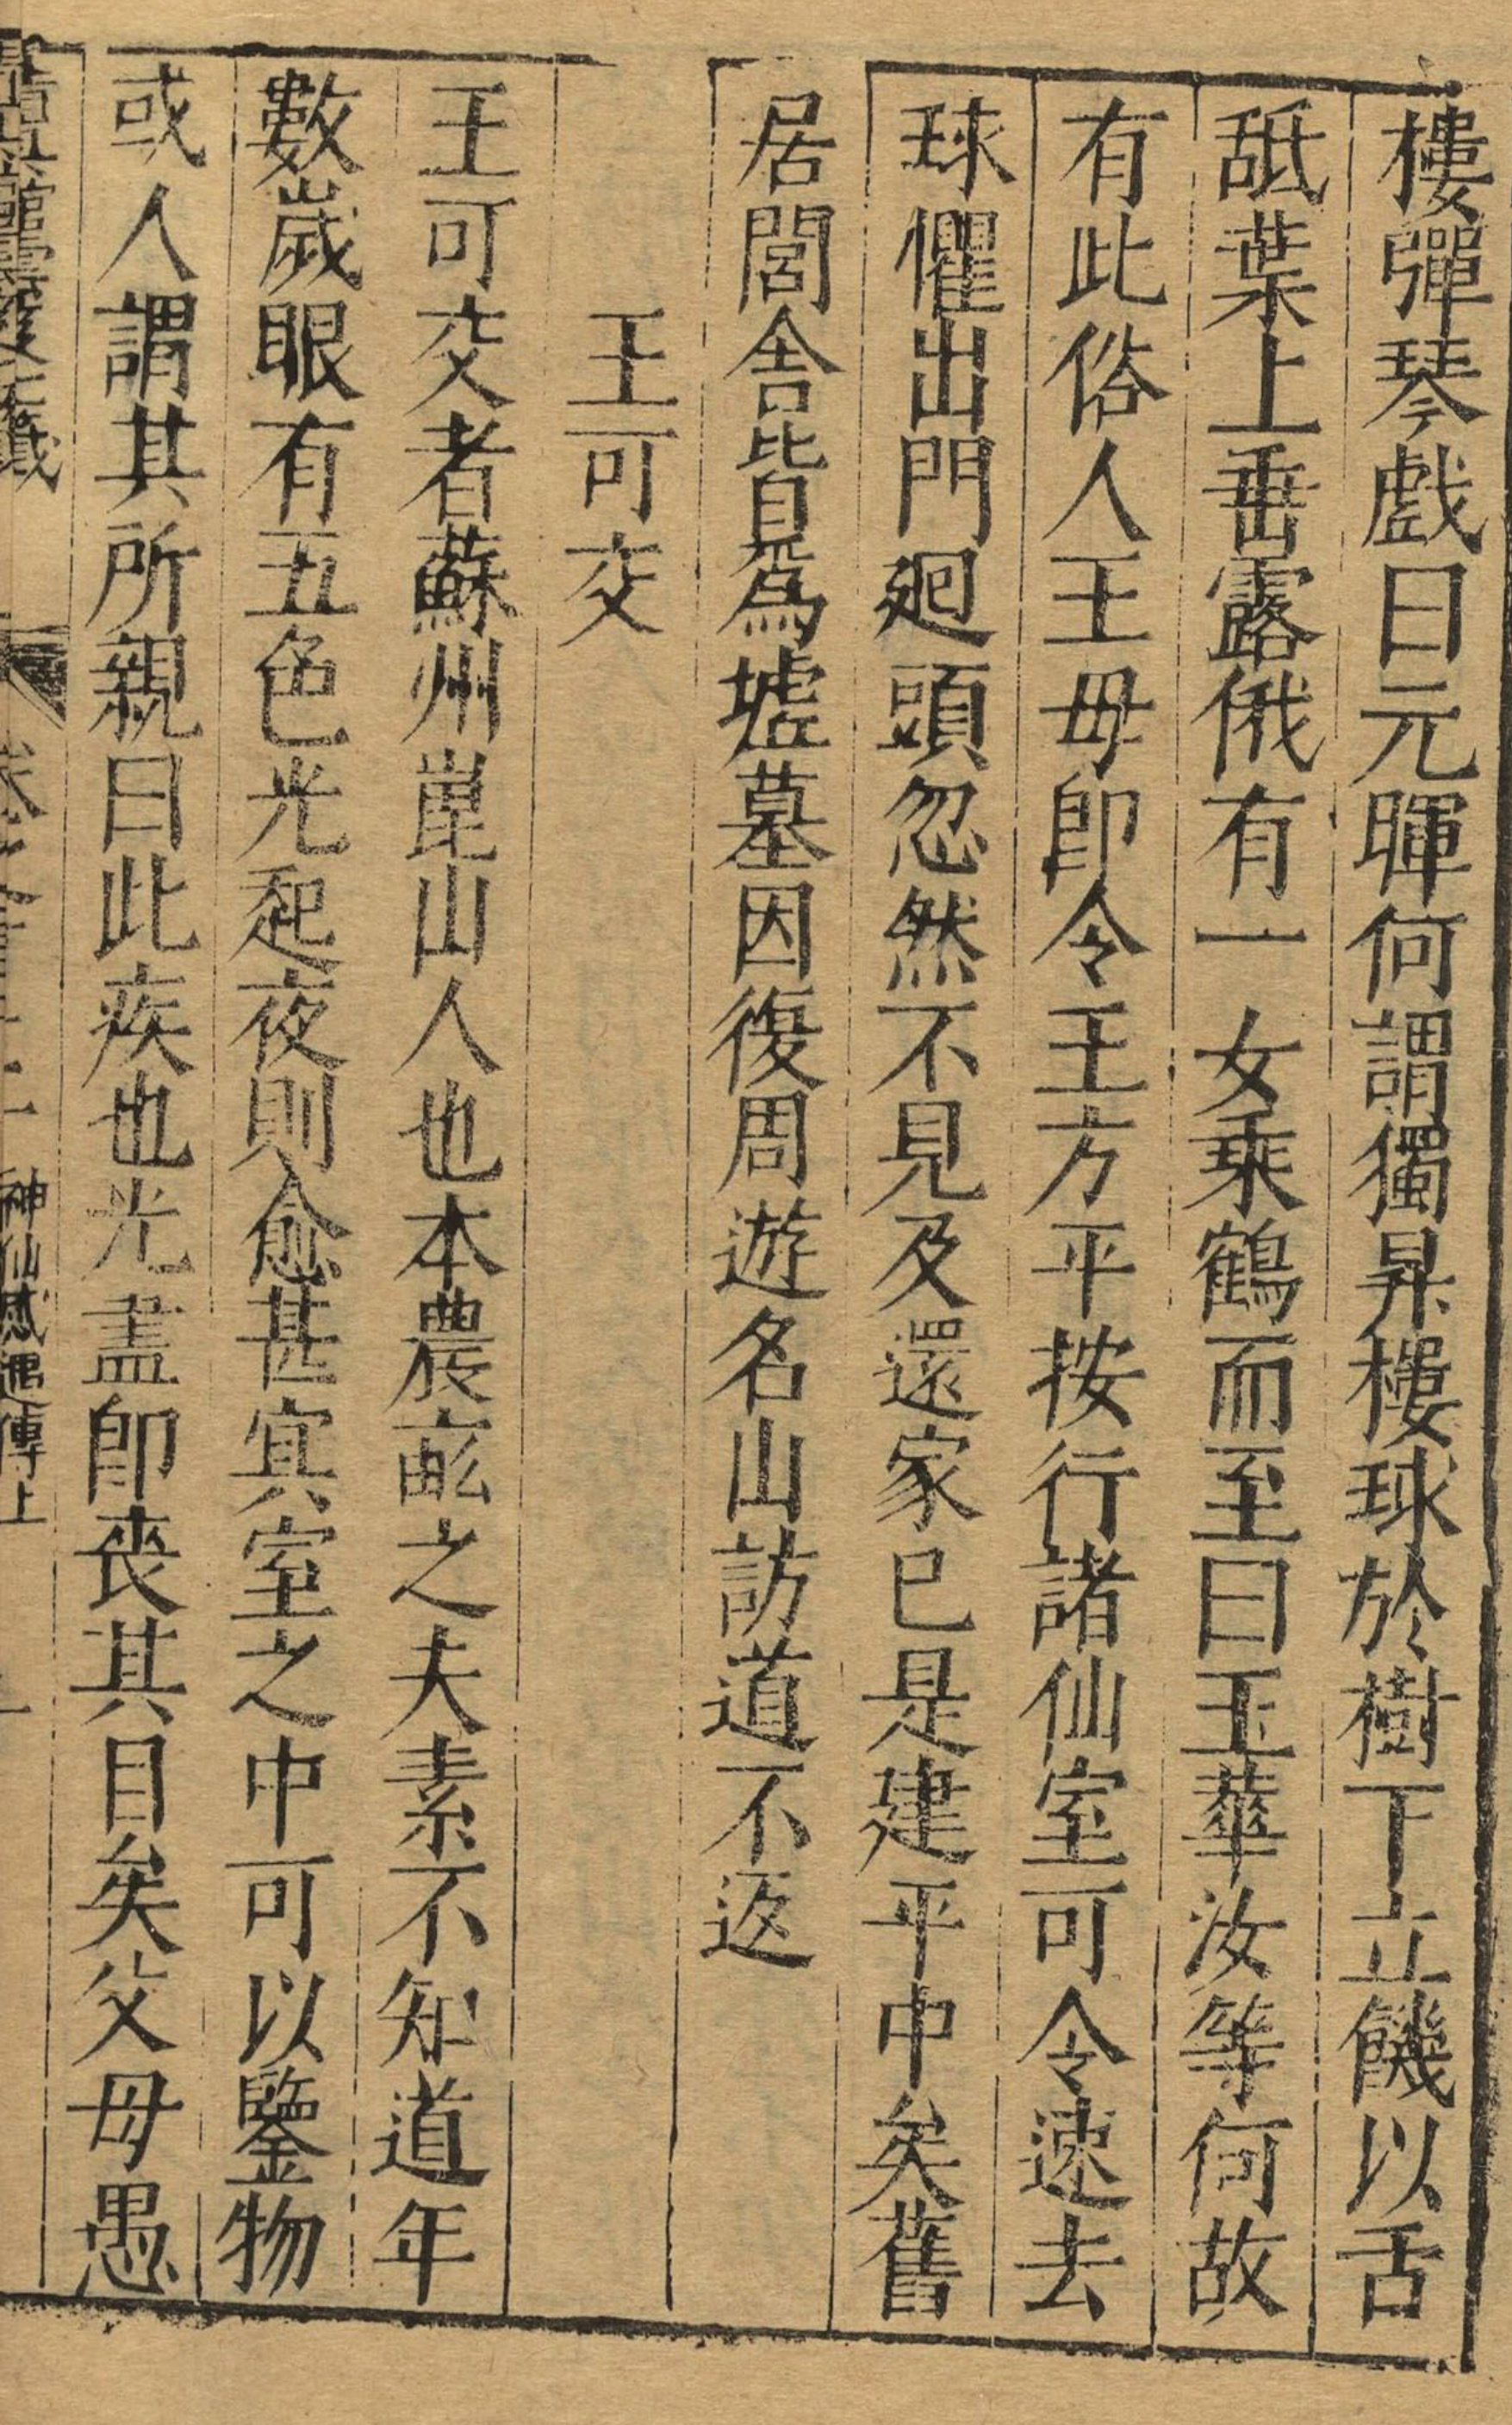 樓彈琴戲曰元暉何謂獨昇樓球於樹下立饑以舌
舐葉上垂露俄有一女乘鶴而至曰玉華汝等何故
有此俗人王母即令王方平按行諸仙室可令速去
球懼出門廻頭忽然不見及還家已是建平中矣舊
居閭舍皆爲墟墓因復周遊名山訪道不返
王可交
王可交者蘇州崑山人也本農畝之夫素不知道年
數歲眼有五色光起夜則愈甚冥室之中可以鑒物
或人謂其所親曰此疾也光盡即喪其目矣父母愚
神仙感遇傳上